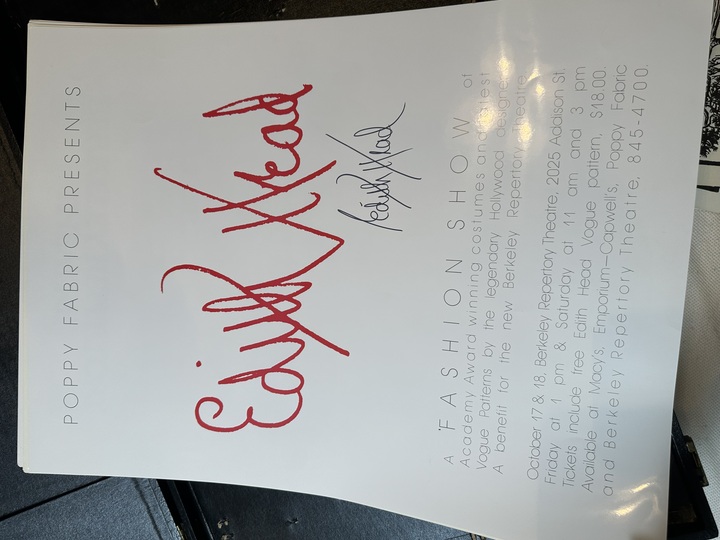 POPPY FABRIC PRESENTS
Edith Head
Edith Head
A FASHION SHOW of
Academy Award winning costumes and latest
Vogue Patterns by the legendary Hollywood designer.
A benefit for the new Berkeley Repertory Theatre.
October 17 & 18, Berkeley Repertory Theatre, 2025 Addison St.
Friday at 1 pm & Saturday at 11 am and 3 pm
Tickets include free Edith Head Vogue pattern, $18.00.
Available at Macy's, Emporium—Capwell's, Poppy Fabric
and Berkeley Repertory Theatre, 845-4700.